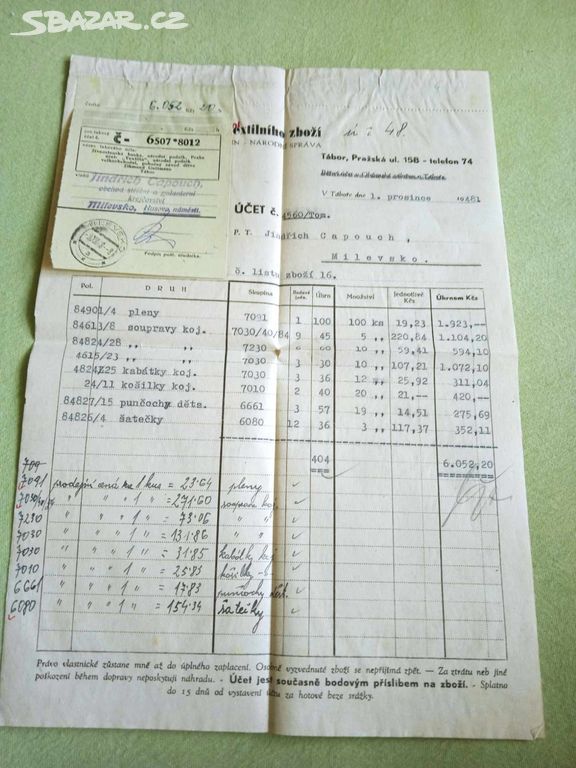 SBAZAR.CZ
6.052 Kčs 20 h
č- 6507*8012
Živnostenská banka, národní podnik, Praha
Tábor
Jindřich Capouch,
obchod střižní a galanterní
krejčovství
Milevsko, Husovo náměstí.
MILEVSKO
Podpis pošt. úředníka.
textilního zboží
ú : 48.
IN - NÁRODNÍ SPRÁVA
Tábor, Pražská ul. 158 - telefon 74
V Táboře dne 1. prosince 1948
ÚČET č. 4560/Tom.
P. T. Jindřich Capouch,
Milevsko.
č. listu zboží 16.
Pol. DRUH Skupina Bodová jedn. Úhrn Množství Jednotlivě Kčs Úhrnem Kčs
84901/4 pleny 7091 1 100 100 ks 19,23 1.923,--
84613/8 soupravy koj. 7030/40/84 9 45 5 ,, 220,84 1.104,20
84824/28 ,, ,, 7230 6 60 10 ,, 59,41 594,10
4615/23 ,, ,, 7030 3 30 10 ,, 107,21 1.072,10
4824/25 kabátky koj. 7030 3 36 12 ,, 25,92 311,04
24/11 košilky koj. 7010 2 40 20 ,, 21,-- 420,--
84827/15 punčochy děts. 6661 3 57 19 ,, 14,51 275,69
84826/4 šatečky 6080 12 36 3 ,, 117,37 352,11
404 6.052,20
709
7091 prodejní cena za 1 kus = 23.64 pleny
7030/40/84 " " " 1 " = 271.60 souprava koj.
7230 " " " 1 " = 73.06 " "
7030 " " " 1 " = 131.86 " "
7030 " " " 1 " = 31.85 kabátky koj.
7010 " " " 1 " = 25.83 košilky -"-
6661 " " " 1 " = 17.83 punčochy dět.
6080 " " " 1 " = 154.34 šatečky
Právo vlastnické zůstane mně až do úplného zaplacení. Osobně vyzvednuté zboží se nepřijímá zpět. — Za ztrátu neb jiné
poškození během dopravy neposkytuji náhradu. - Účet jest současně bodovým příslibem na zboží. - Splatno
do 15 dnů od vystavení účtu za hotové beze srážky.